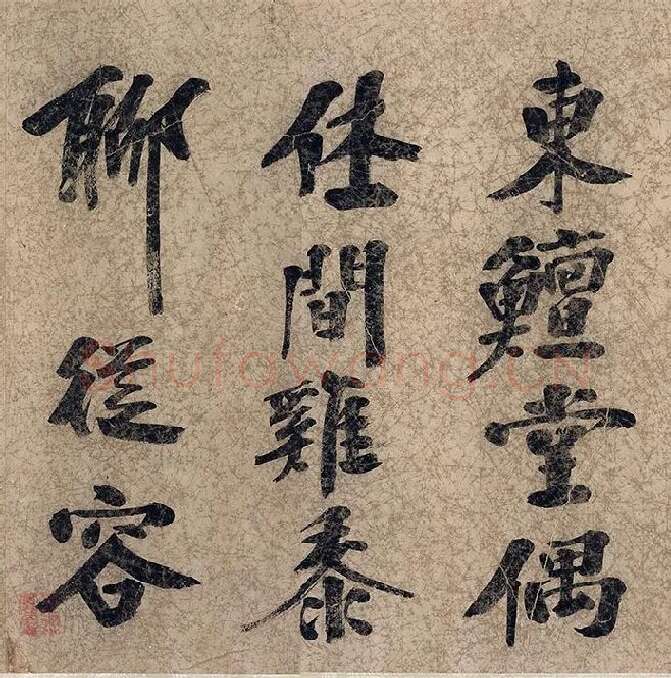 東鱣堂偶
休間雞黍
聊從容
Shufawang.CN